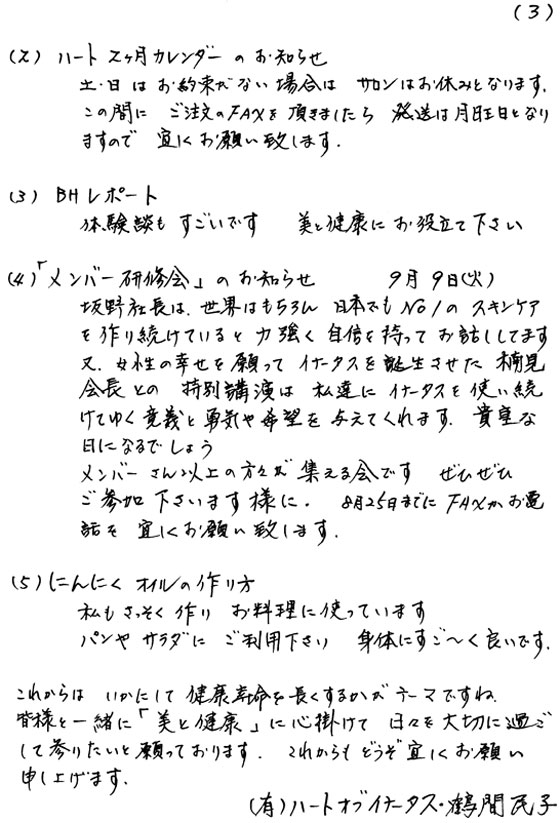 (3)
(2) ハート 2ヶ月カレンダー の お知らせ
土・日 は お約束がない 場合は サロンはお休みとなります.
この間に ご注文のFAXを 頂きましたら 発送は月曜日となり
ますので 宜しくお願い致します.
(3) BHレポート
体験談も すごいです 美と健康に お役立て下さい
(4)「メンバー 研修会」の お知らせ 9月 9日(火)
坂野社長は、世界はもちろん 日本でも No 1の スキンケア
を作り続けていると 力強く 自信を持って お話ししてます
又、女性の幸せを 願って イオナータスを 誕生させた 楠見
会長 との 特別講演は 私達に イオナータスを 使い続
けてゆく 意義と 勇気や希望を 与えてくれます. 貴重な
日になるでしょう
メンバー さん以上の方々が 集える会です ぜひぜひ
ご参加 下さいます様に. 8月25日までに FAXかお電
話を 宜しくお願い致します.
(5) にんにく オイルの作り方
私も さっそく 作り お料理に使っています
パンや サラダに ご利用下さい 身体にすご〜く良いです.
これからは いかにして 健康寿命を長くするかが テーマですね.
皆様と一緒に「美と健康」に心掛けて 日々を大切に過ご
して参りたいと願っております. これからも どうぞ 宜しくお願い
申し上げます.
(有)ハートオブイオナータス・鶴間民子